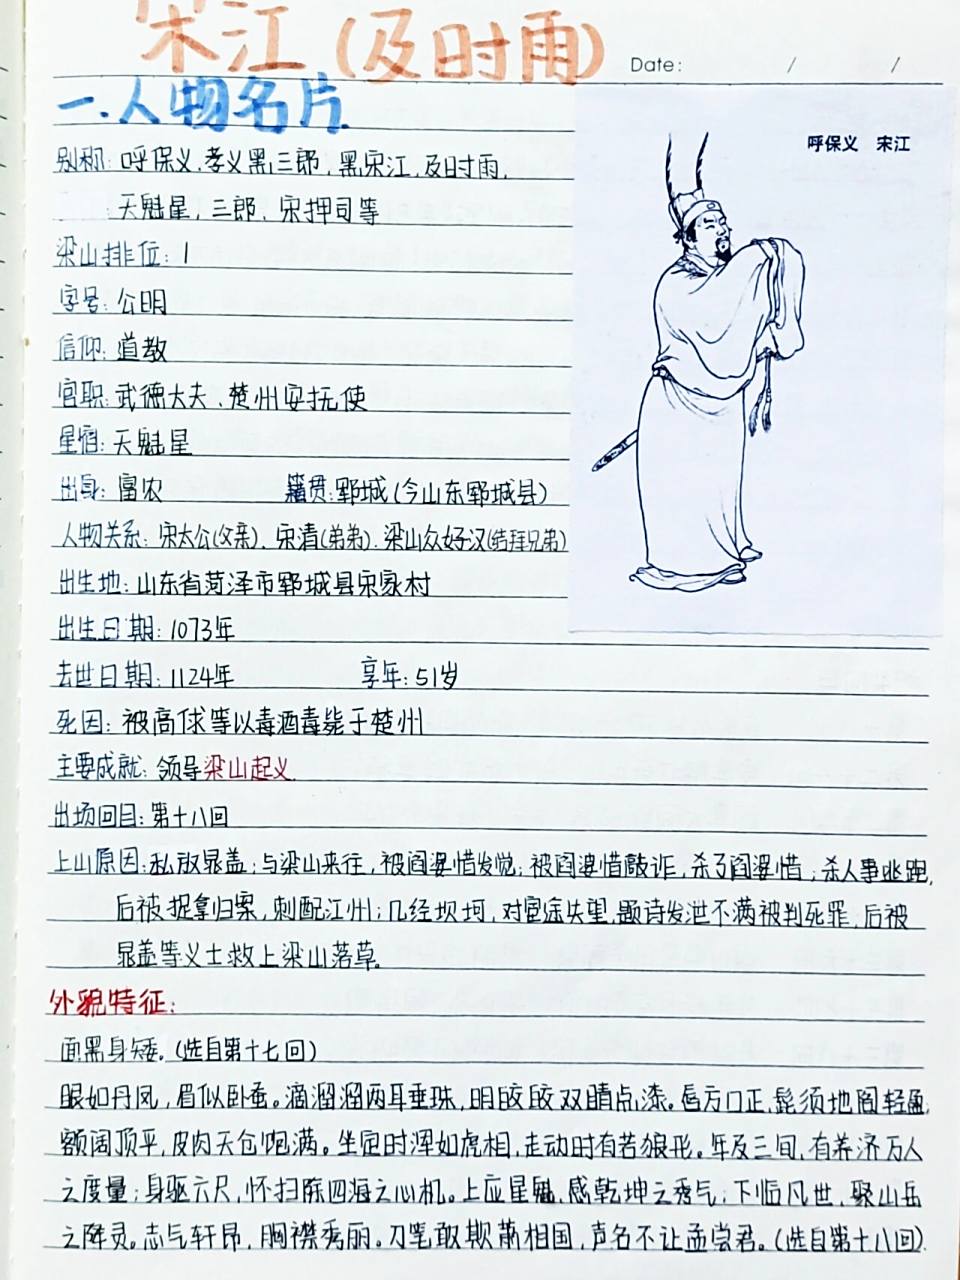 宋江(及时雨)
Date: / /
一.人物名片
呼保义 宋江
别称:呼保义,孝义黑三郎,黑宋江,及时雨,
:天魁星,三郎、宋押司等
梁山排位:1
字号:公明
信仰:道教
官职:武德大夫、楚州安抚使
星宿:天魁星
出身:富农 籍贯:郓城(今山东郓城县)
人物关系:宋太公(父亲)、宋清(弟弟).梁山众好汉(结拜兄弟)
出生地:山东省菏泽市郓城县宋家村
出生日期:1073年
去世日期:1124年 享年:51岁
死因:被高俅等以毒酒毒毙于楚州
主要成就:领导梁山起义
出场回目:第十八回
上山原因:私放晁盖;与梁山来往,被阎婆惜发觉;被阎婆惜敲诈,杀了阎婆惜;杀人事逃跑,
后被捉拿归案,刺配江州;几经坎坷,对宦途失望,题诗发泄不满被判死罪,后被
晁盖等义士救上梁山落草.
外貌特征:
面黑身矮。(选自第十七回)
眼如丹凤,眉似卧蚕。滴溜溜两耳垂珠,明皎皎双睛点漆。唇方口正,髭须地阁轻盈;
额阔顶平,皮肉天仓饱满。坐定时浑如虎相,走动时有若狼形。年及三旬,有养济万人
之度量;身躯六尺,怀扫除四海之心机。上应星魁,感乾坤之秀气;下临凡世,聚山岳
之降灵。志气轩昂,胸襟秀丽。刀笔敢欺萧相国,声名不让孟尝君。(选自第十八回)